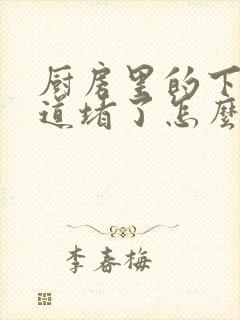 厨房里的下
道堵了怎麼
李春梅